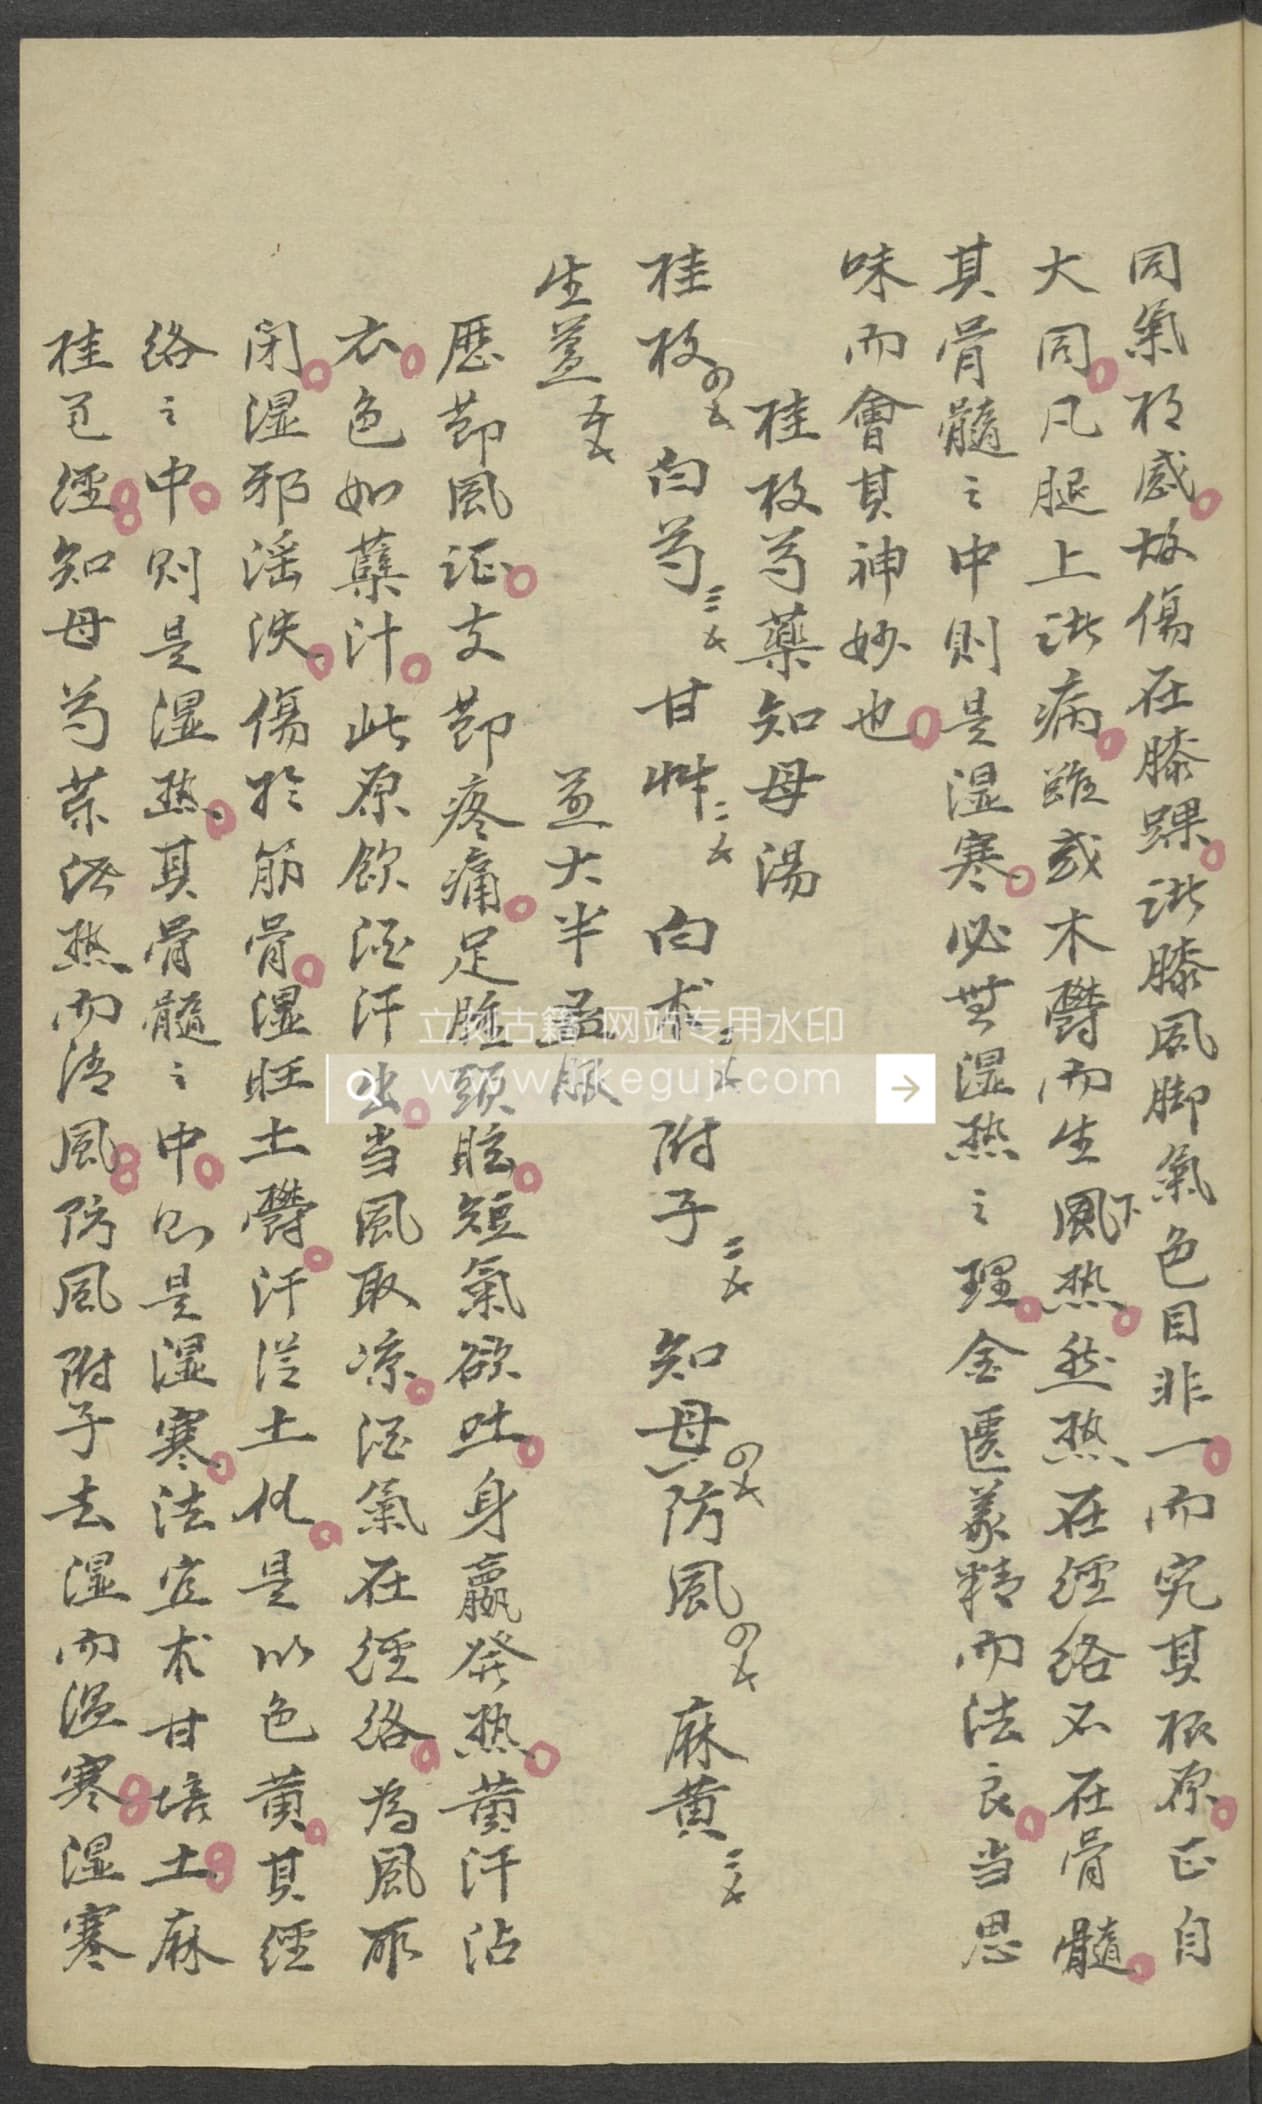 同氣相感故傷在膝踝諸膝風脚氣色目非一而究其根原正自
大同凡腿上諸病雖或木鬱而生下風热然热在經絡不在骨髓
其骨髓之中則是湿寒必無湿热之理金匱義精而法良当思
味而會其神妙也
桂枝芍藥知母湯
桂枝 白芍三 甘艸二 白术二 附子二 知母 防風 麻黄二
生薑五 煎大半 服
歷節風证支節疼痛足腫頭眩短氣欲吐身羸發热黄汗沾
衣色如蘗汁此原飲酒汗出当風取凉酒氣在經絡為風所
闭湿邪滛泆傷於筋骨湿旺土鬱汗從土化是以色黄其經
絡之中則是湿热其骨髓之中則是湿寒法宜术甘培土麻
桂通經知母芍藥泄热而清風防風附子去湿而温寒湿寒
立刻古籍 网站专用水印
www.likeguji.com